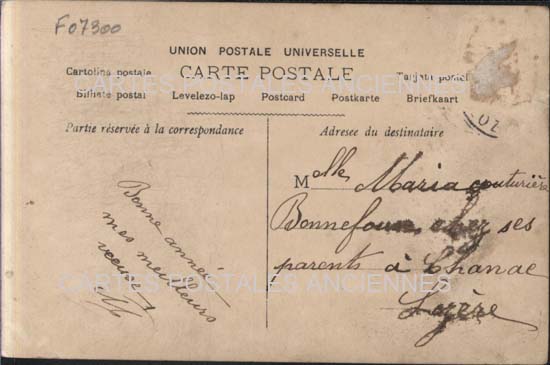 F07300
UNION POSTALE UNIVERSELLE
Cartolina postale CARTE POSTALE Tarjeta postal
Bilhete postal Levelezo-lap Postcard Postkarte Briefkaart
CARTES POSTALES ANCIENNES
Partie réservée à la correspondance
Adresse du destinataire
Bonne année
mes meilleurs
voeux
Melle Maria couturière
Bonnefoux, chez ses
parents à Chanac
Lozère
CARTES POSTALES ANCIENNES